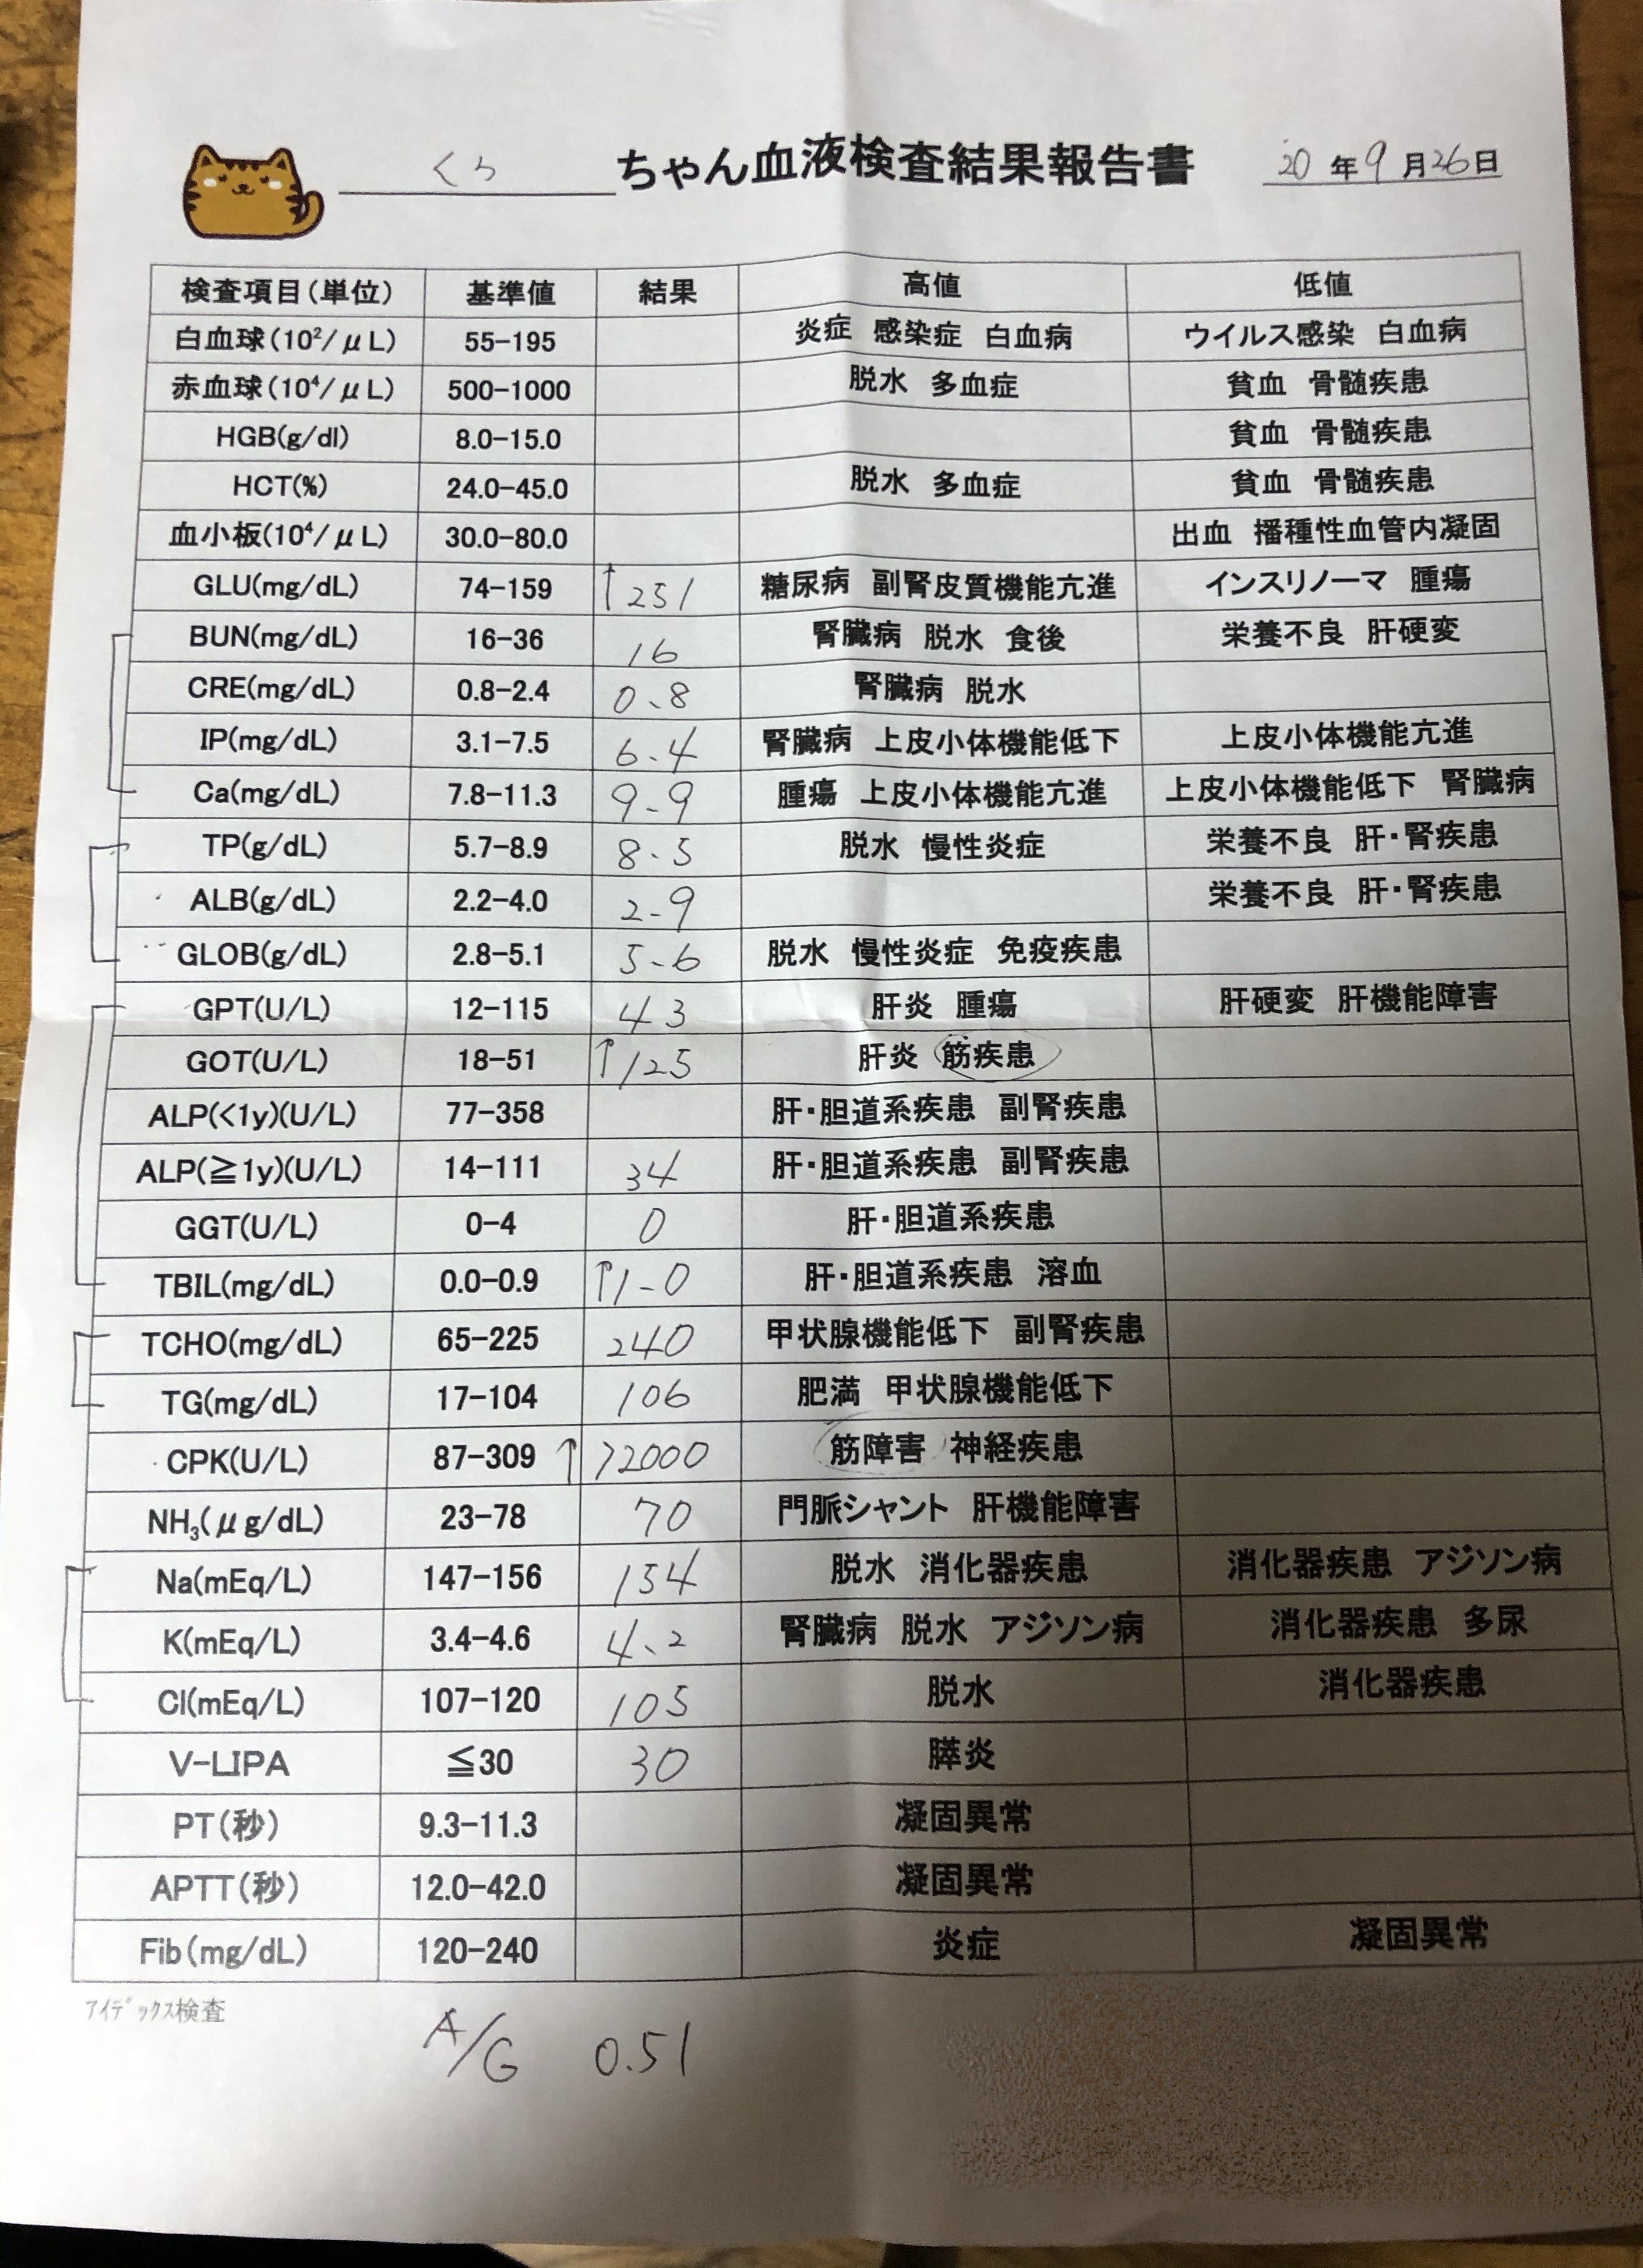 くぅ ちゃん血液検査結果報告書 20年9月26日
検査項目(単位) 基準値 結果 高値 低値
白血球(10²/μL) 55-195 炎症 感染症 白血病 ウイルス感染 白血病
赤血球(10⁴/μL) 500-1000 脱水 多血症 貧血 骨髄疾患
HGB(g/dl) 8.0-15.0 貧血 骨髄疾患
HCT(%) 24.0-45.0 脱水 多血症 貧血 骨髄疾患
血小板(10⁴/μL) 30.0-80.0 出血 播種性血管内凝固
GLU(mg/dL) 74-159 ↑251 糖尿病 副腎皮質機能亢進 インスリノーマ 腫瘍
BUN(mg/dL) 16-36 16 腎臓病 脱水 食後 栄養不良 肝硬変
CRE(mg/dL) 0.8-2.4 0.8 腎臓病 脱水
IP(mg/dL) 3.1-7.5 6.4 腎臓病 上皮小体機能低下 上皮小体機能亢進
Ca(mg/dL) 7.8-11.3 9.9 腫瘍 上皮小体機能亢進 上皮小体機能低下 腎臓病
TP(g/dL) 5.7-8.9 8.5 脱水 慢性炎症 栄養不良 肝・腎疾患
ALB(g/dL) 2.2-4.0 2.9 栄養不良 肝・腎疾患
GLOB(g/dL) 2.8-5.1 5.6 脱水 慢性炎症 免疫疾患
GPT(U/L) 12-115 43 肝炎 腫瘍 肝硬変 肝機能障害
GOT(U/L) 18-51 ↑125 肝炎 筋疾患
ALP(<1y)(U/L) 77-358 肝・胆道系疾患 副腎疾患
ALP(≧1y)(U/L) 14-111 34 肝・胆道系疾患 副腎疾患
GGT(U/L) 0-4 0 肝・胆道系疾患
TBIL(mg/dL) 0.0-0.9 ↑1.0 肝・胆道系疾患 溶血
TCHO(mg/dL) 65-225 240 甲状腺機能低下 副腎疾患
TG(mg/dL) 17-104 106 肥満 甲状腺機能低下
CPK(U/L) 87-309 ↑>2000 筋障害 神経疾患
NH₃(μg/dL) 23-78 70 門脈シャント 肝機能障害
Na(mEq/L) 147-156 154 脱水 消化器疾患 消化器疾患 アジソン病
K(mEq/L) 3.4-4.6 4.2 腎臓病 脱水 アジソン病 消化器疾患 多尿
Cl(mEq/L) 107-120 105 脱水 消化器疾患
V-LIPA ≦30 30 膵炎
PT(秒) 9.3-11.3 凝固異常
APTT(秒) 12.0-42.0 凝固異常
Fib(mg/dL) 120-240 炎症 凝固異常
ｱｲﾃﾞｯｸｽ検査
A/G 0.51